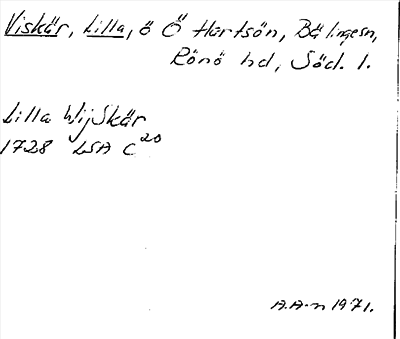 Viskär, Lilla, ö Ö Hartsön, Bälingesn,
Rönö hd, Söd. l.
Lilla Wijskär
1728 LSA C20
A.A-n 1971.